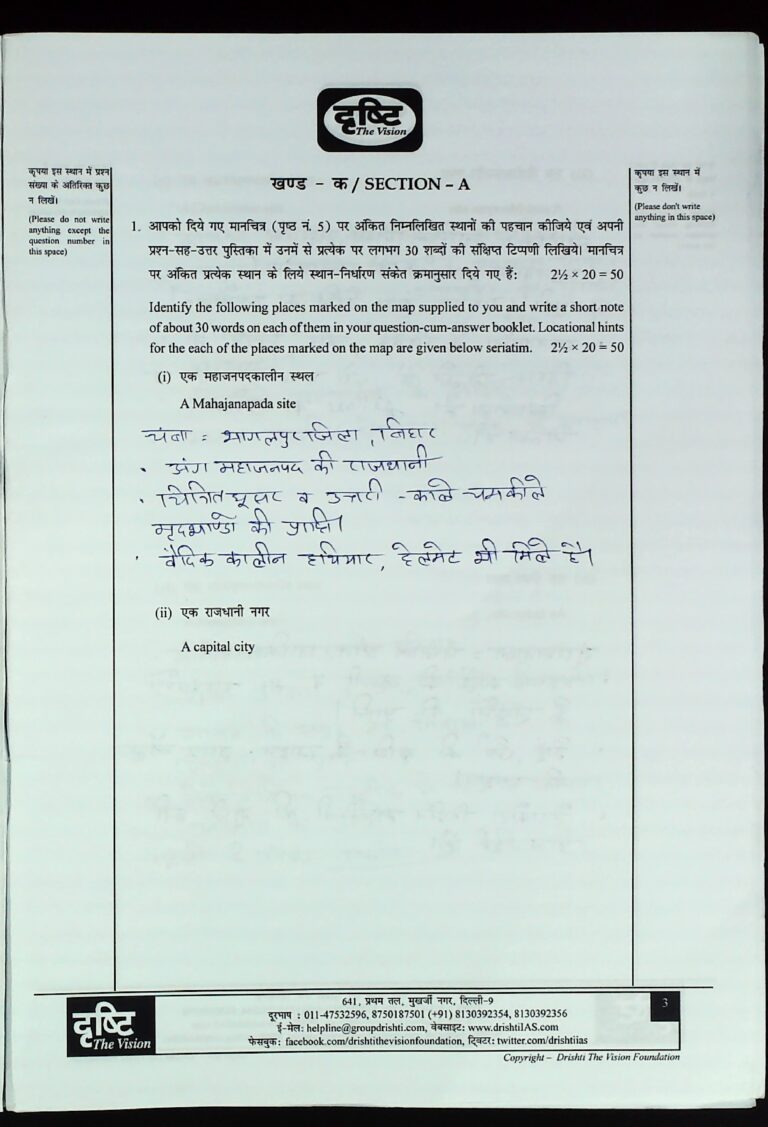 दृष्टि
The Vision
कृपया इस स्थान में प्रश्न
संख्या के अतिरिक्त कुछ
न लिखें।
(Please do not write
anything except the
question number in
this space)
कृपया इस स्थान में
कुछ न लिखें।
(Please don't write
anything in this space)
खण्ड - क / SECTION - A
1. आपको दिये गए मानचित्र (पृष्ठ नं. 5) पर अंकित निम्नलिखित स्थानों की पहचान कीजिये एवं अपनी
प्रश्न-सह-उत्तर पुस्तिका में उनमें से प्रत्येक पर लगभग 30 शब्दों की संक्षिप्त टिप्पणी लिखिये। मानचित्र
पर अंकित प्रत्येक स्थान के लिये स्थान-निर्धारण संकेत क्रमानुसार दिये गए हैं: 2½ × 20 = 50
Identify the following places marked on the map supplied to you and write a short note
of about 30 words on each of them in your question-cum-answer booklet. Locational hints
for the each of the places marked on the map are given below seriatim. 2½ × 20 = 50
(i) एक महाजनपदकालीन स्थल
A Mahajanapada site
चंपा : भागलपुर जिला, बिहार
• अंग महाजनपद की राजधानी
• चित्रित धूसर व उत्तरी - काले चमकीले
मृदभाण्डों की प्राप्ति।
• वैदिक कालीन हथियार, हेलमेट भी मिले है।
(ii) एक राजधानी नगर
A capital city
दृष्टि
The Vision
641, प्रथम तल, मुखर्जी नगर, दिल्ली-9
दूरभाष : 011-47532596, 8750187501 (+91) 8130392354, 8130392356
ई-मेल: helpline@groupdrishti.com, वेबसाइट: www.drishtiIAS.com
फेसबुक: facebook.com/drishtithevisionfoundation, ट्विटर: twitter.com/drishtiias
3
Copyright – Drishti The Vision Foundation